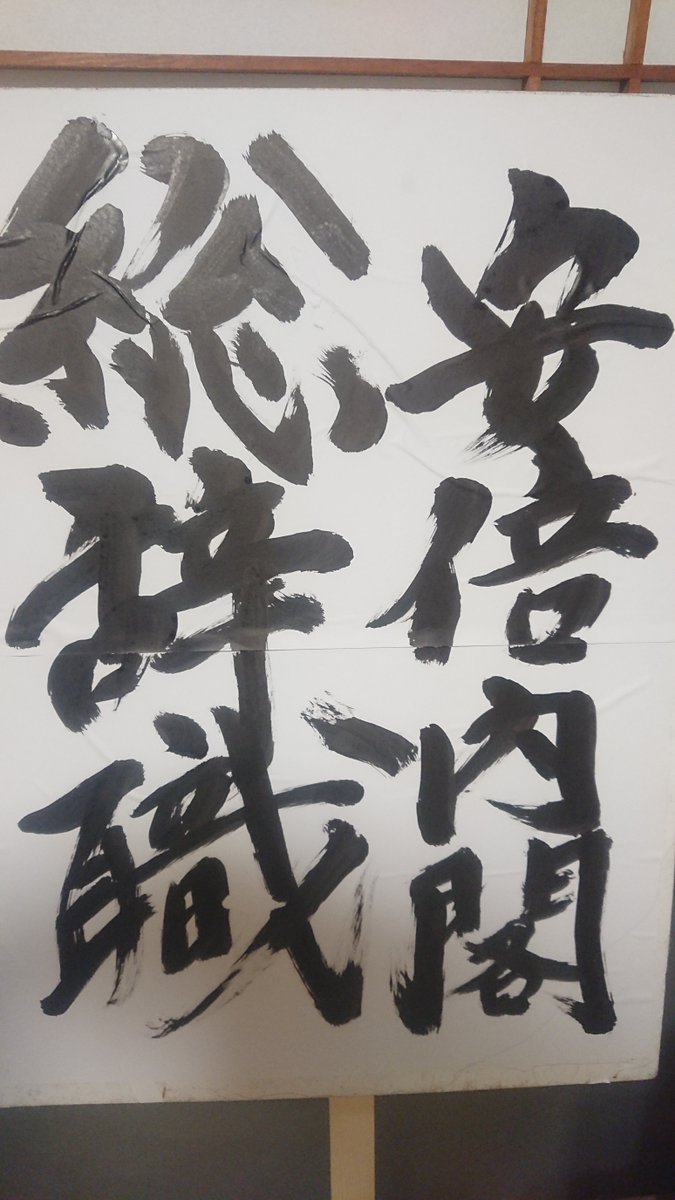 安倍内閣
総辞職